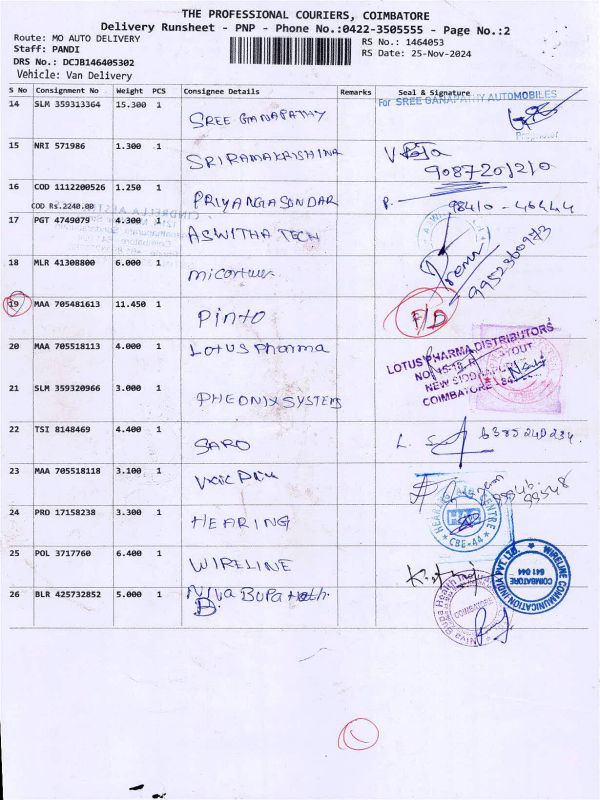 THE PROFESSIONAL COURIERS, COIMBATORE
Delivery Runsheet - PNP - Phone No.:0422-3505555 - Page No.:2
Route: MO AUTO DELIVERY
RS No.: 1464053
Staff: PANDI
RS Date: 25-Nov-2024
DRS No.: DCJB146405302
Vehicle: Van Delivery
S No Consignment No Weight PCS Consignee Details Remarks Seal & Signature
For SREE GANAPATHY AUTOMOBILES
14 SLM 359313364 15.300 1 SREE GANAPATHY
Proprietor
15 NRI 571986 1.300 1 SRIRAMAKRISHNA
9087201210
16 COD 1112200526 1.250 1 PRIYANGASUNDAR
COD Rs.2240.00
P. - 98410 - 46444
17 PGT 4749079 4.300 1 ASWITHA TECH
Prem
9952360973
18 MLR 41308800 6.000 1
19 MAA 705481613 11.450 1 Pinto F/D
20 MAA 705518113 4.000 1 Lotus Pharma
LOTUS PHARMA DISTRIBUTORS
LAYOUT
NEW SIDDHAPUR
COIMBATORE
21 SLM 359320966 3.000 1 PHEONIX SYSTEMS
22 TSI 8148469 4.400 1 SARO
6385240234
23 MAA 705518118 3.100 1
24 PRO 17158238 3.300 1 HEARING
HEARING AID CENTRE
* CBE-44 *
25 POL 3717760 6.400 1 WIRELINE
WIRELINE COMMUNICATION INDIA PVT LTD.
COIMBATORE
641 044
26 BLR 425732852 5.000 1 Niva Bupa Heth.
B.
COIMBATORE